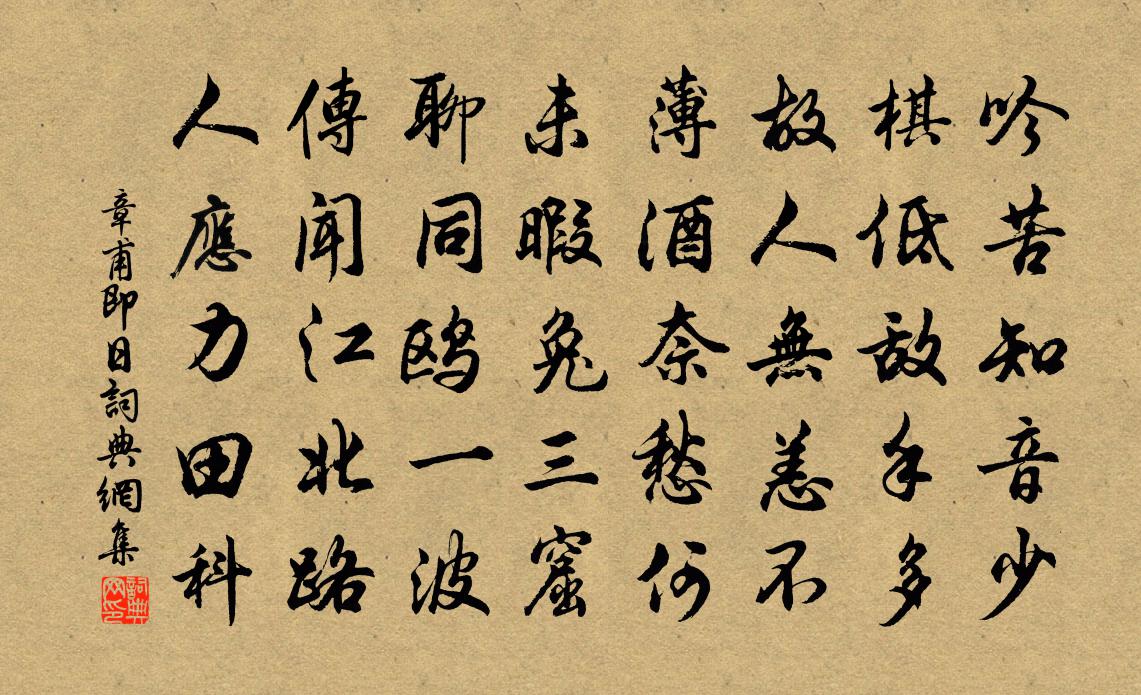 吟苦知音少
棋低敌手多
故人無恙不
薄酒奈愁何
未暇兔三窟
聊同鸥一波
傳聞江北路
人應力田科
章甫即日詞典網集
詞典网印